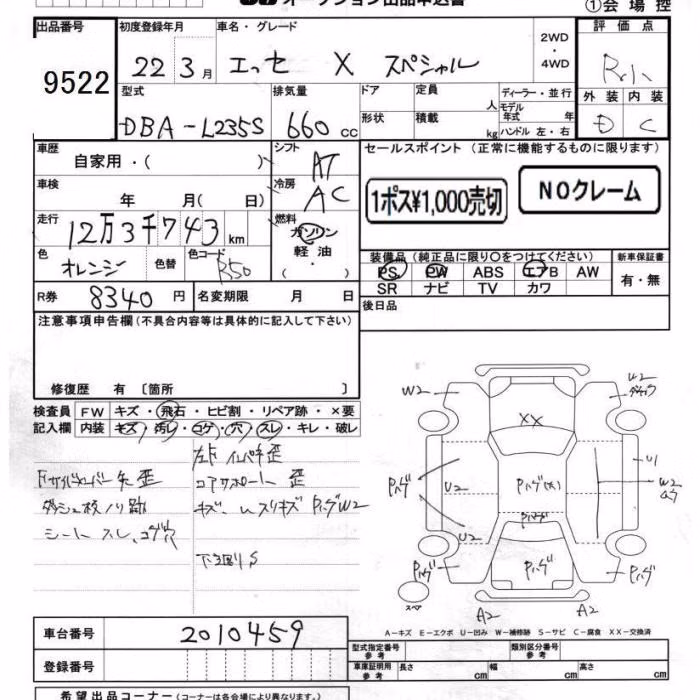 オークション出品申込書
①会場控
出品番号
9522
初度登録年月
22 3月
車名・グレード
エッセ X スペシャル
2WD・4WD
評価点
外装 内装
D C
型式
DBA-L235S
排気量
660 cc
ドア
定員 人
形状
積載 kg
ディーラー・並行
モデル年式 年
ハンドル 左・右
車歴
自家用・( )
シフト
AT
車検
年 月( 日)
冷房
AC
走行
12万3千743 km
燃料
ガソリン
軽油
・( )
色
オレンジ
色替
色コード
R50
R券
8340円
名変期限 月 日
セールスポイント(正常に機能するものに限ります)
1ポス¥1,000売切
NOクレーム
装備品(純正品に限り〇をつけてください)
PS PW ABS エアB AW
SR ナビ TV カワ
新車保証書
有・無
後日品
注意事項申告欄(不具合内容等は具体的に記入して下さい)
修復歴 有〔箇所 〕
検査員記入欄
FW キズ・飛石・ヒビ割・リペア跡・×要
内装 キズ・汚レ・コゲ・穴・スレ・キレ・破レ
コアサポート 歪
シート スレ、コゲ穴
下回りS
W2
XX
U2
U1
W2
パリグ
U2
U2
A2
A2
スペア
A-キズ E-エクボ U-凹み W-補修跡 S-サビ C-腐食 XX-交換済
車台番号
2010459
登録番号
型式指定番号 参考
類別区分番号 参考
車庫証明用 参考
長さ cm
幅 cm
高さ cm
希望出品コーナー(コーナーは各会場により異なります)